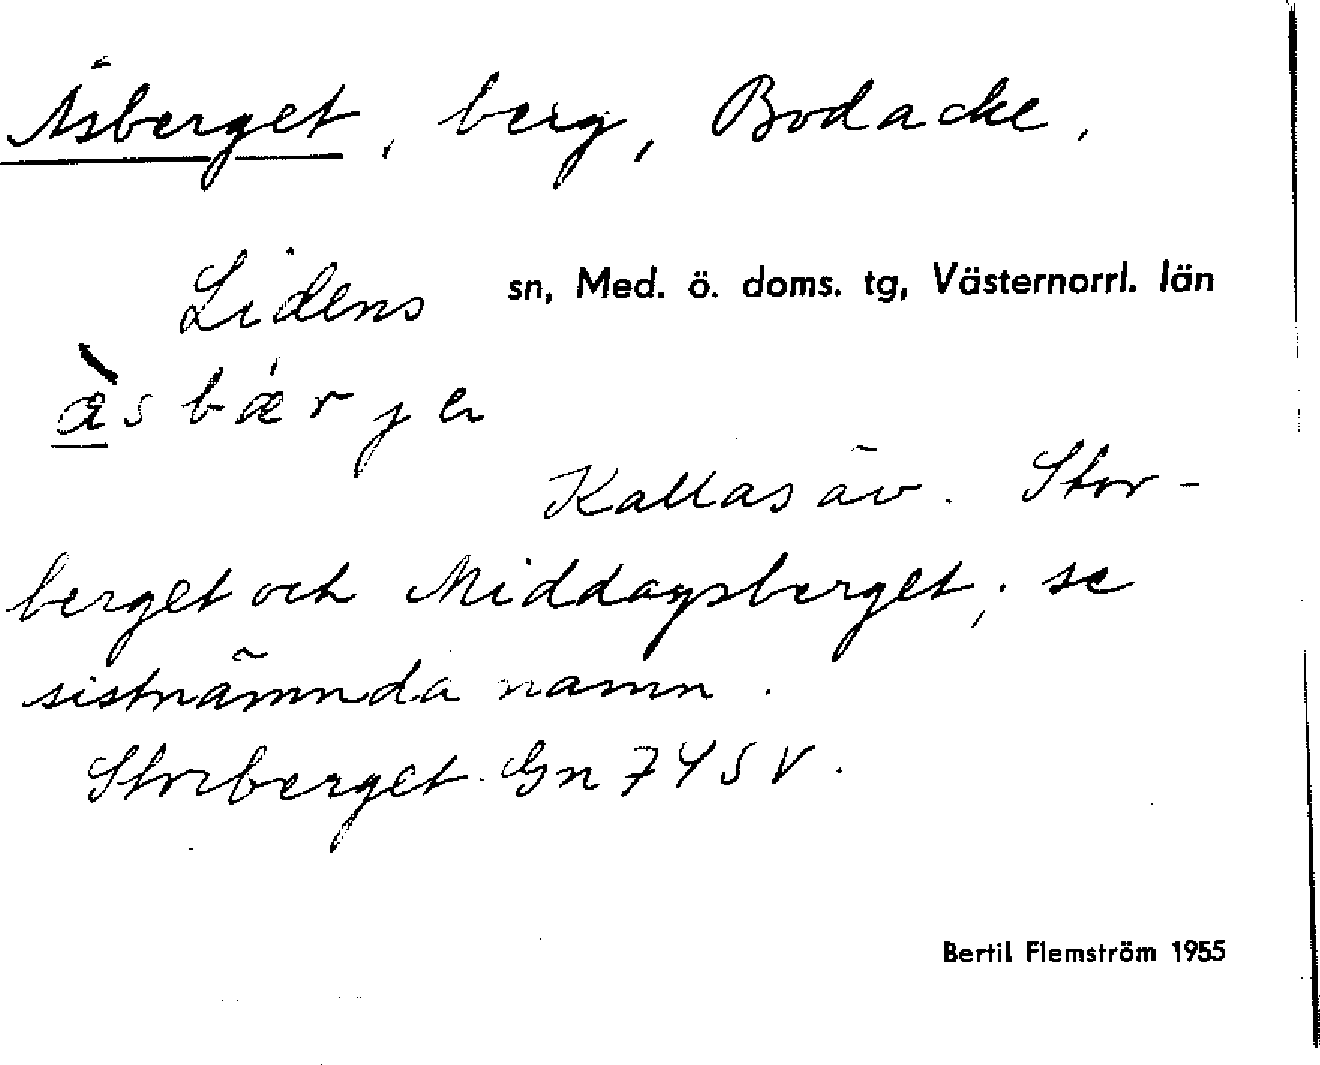 Åsberget, berg, Bodacke.
Lidens sn, Med. ö. doms. tg, Västernorrl. län
æ̀sbǽrjen
Kallas äv. Stor-
berget och Middagsberget; se
sistnämnda namn.
Storberget. Gn 74SV.
Bertil Flemström 1955